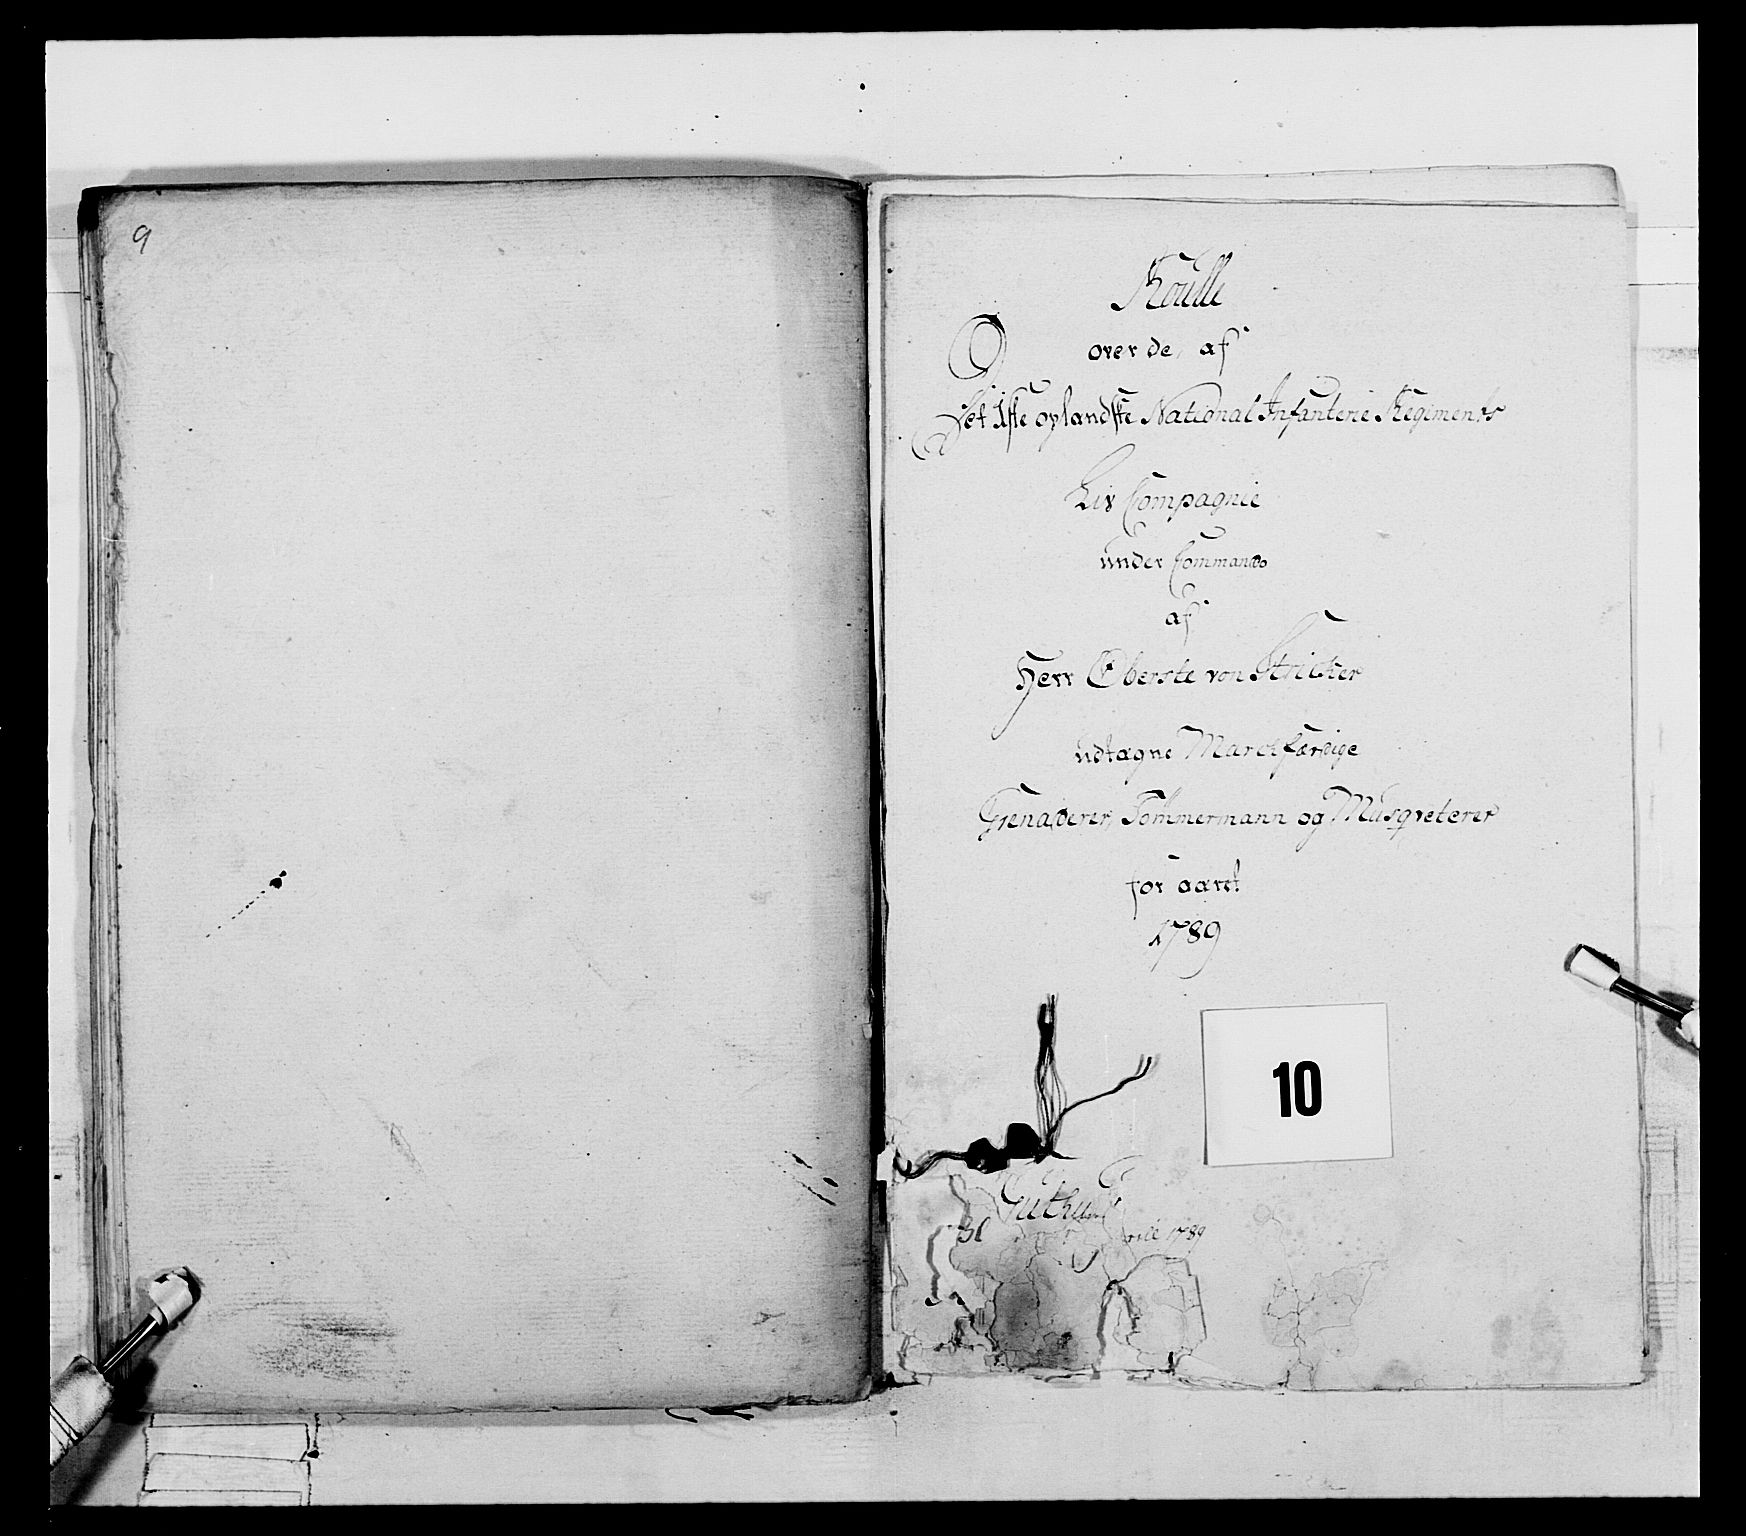 9
Roulle
over de, af
Det 1ste oplandske National Infanterie Regiments
Liv Compagnie
under Commando
af
Herr Oberste von Stricker
udtagne Marchfærdige
Grenaderer, Tömmermann og Musqveterer
for aaret
1789
10
1789